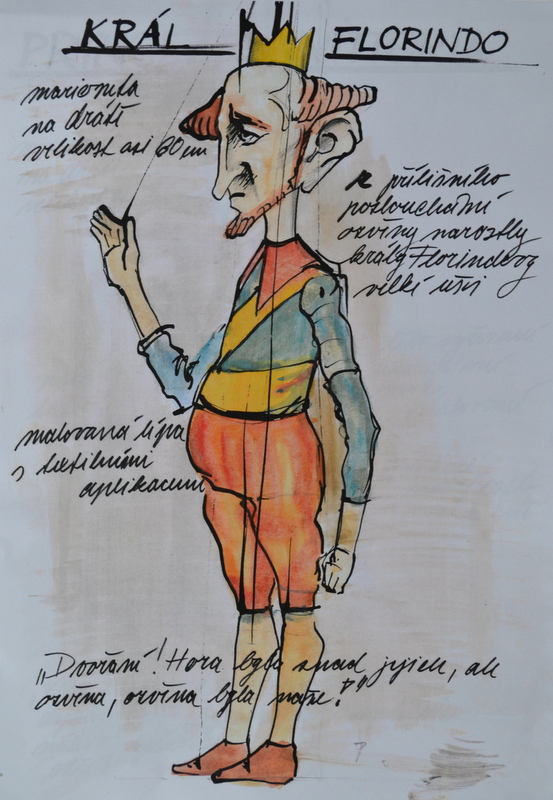 KRÁL FLORINDO
marioneta
na drátě
velikost asi 60 cm
z přílišného
poslouchání
ozvěny narostly
krály Florindovy
velké uši
malovaná lípa
s textilními
aplikacemi
„Dvořané! Hora byla snad jejich, ale
ozvěna, ozvěna byla naše!"